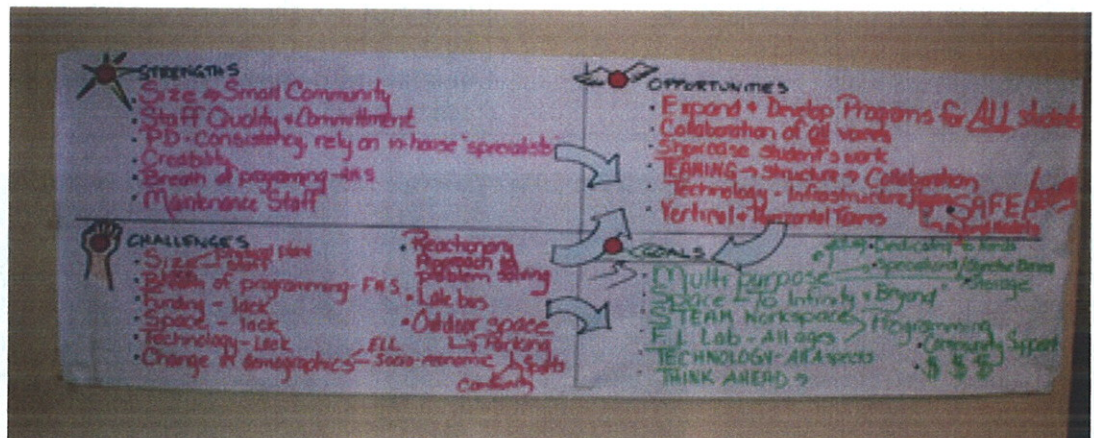 STRENGTHS
• Size → Small Community
• Staff Quality + Committment
• PD - Consistency, rely on in-house "specialists"
• Credibility
• Breath of programing - AHS
• Maintenance Staff
OPPORTUNITIES
• Expand + Develop Programs for ALL students
• Collaboration of all
• Showcase student's work
• TEAMING → structure → Collaboration
• Technology - Infrastructure
• Vertical + Horizontal Teams
• SAFE
CHALLENGES
• Size physical plant
• Breath of programming - FHS
• Funding - lack
• Space - lack
• Technology - Lack
• Change in demographics ELL
Socio-economic
• Reactionary
Approach to
problem solving
• Late bus
• Outdoor space
Parking
Sports
Community
GOALS
• Multi purpose
• Dedicating
• Storage
• Space - "To Infinity + Beyond"
• STEAM Workspaces
Programming
• F.L. Lab - All ages
• Community Support
• TECHNOLOGY - All Aspects
• $ $ $
• THINK AHEAD →